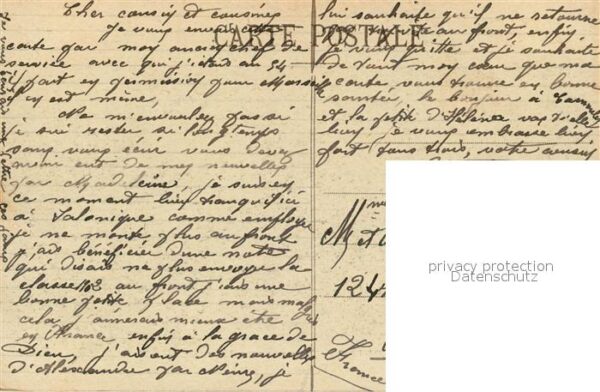 Cher cousin et cousines
je vous envoie cette
CARTE POSTALE
carte par mon ancien chef de
service avec qui j'étais au 84
il part en permission pour Marseille
il en est même,
Ne m'en voulez pas se
je suis rester si longtemps
sans vous écrir vous devez
avoir eut de mes nouvelles
par Madeleine, je suis en
ce moment bien tranquil ici
à Salonique comme employe
je ne monte plus au front
j'ais bénéficier d'une note
qui disais ne plus envoyer la
classe 1102 au front j'ais une
bonne petite place mais malgrés
cela j'aimerais mieux être
en France enfin à la grace de
Dieu, j'ais ent des nouvelles
d'Alexandre par Mémé, je
lui souhaite qu'il ne retourne
au front, enfin
je vous quitte et je souhaite
de tout mon cœur que ma
carte vous trouve en bonne
santée, le bonjour à
et la petite d'Hélène
bien je vous embrasse bien
fort tous trois, votre cousin
je vous écrirais une lettre
Mme
Met
124
France
privacy protection
Datenschutz